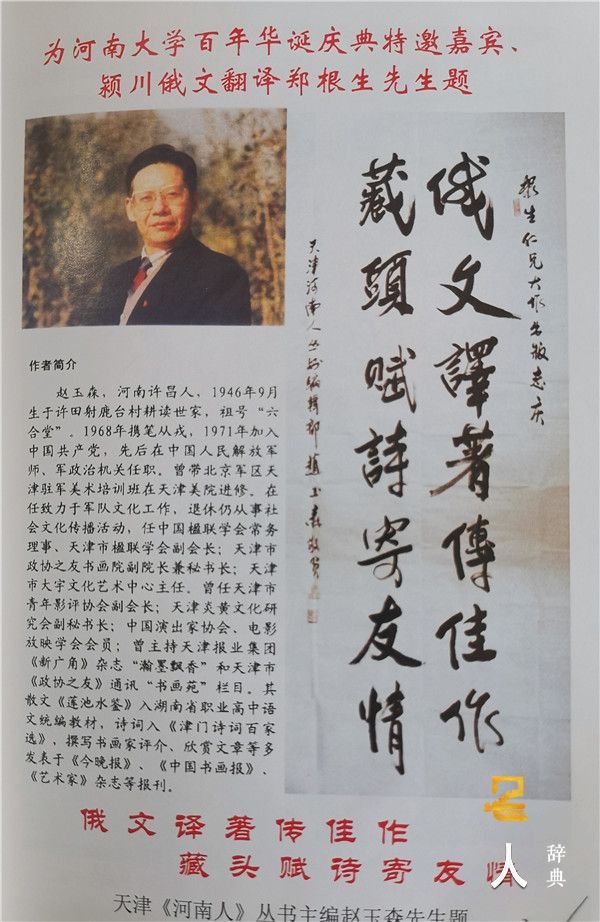 为河南大学百年华诞庆典特邀嘉宾、
颍川俄文翻译郑根生先生题
作者简介
赵玉森，河南许昌人，1946年9月
生于许田射鹿台村耕读世家，祖号“六
合堂”。1968年携笔从戎，1971年加入
中国共产党，先后在中国人民解放军
师、军政治机关任职。曾带北京军区天
津驻军美术培训班在天津美院进修。在
任致力于军队文化工作，退休仍从事社
会文化传播活动，任中国楹联学会常务
理事、天津市楹联学会副会长；天津市
政协之友书画院副院长兼秘书长；天津
市大宇文化艺术中心主任。曾任天津市
青年影评协会副会长；天津炎黄文化研
究会副秘书长；中国演出家协会、电影
放映学会会员；曾主持天津报业集团
《新广角》杂志“瀚墨飘香”和天津市
《政协之友》通讯“书画苑”栏目。其
散文《莲池水鉴》入湖南省职业高中语
文统编教材，诗词入《津门诗词百家
选》，撰写书画家评介、欣赏文章等多
发表于《今晚报》、《中国书画报》、
《艺术家》杂志等报刊。
根生仁兄大作出版志庆
俄文譯著傳佳作
藏頭賦詩寄友情
天津河南人丛书编辑部趙玉森敬贺
俄文译著传佳作
藏头赋诗寄友情
天津《河南人》丛书主编赵玉森先生题
名
人
辞典